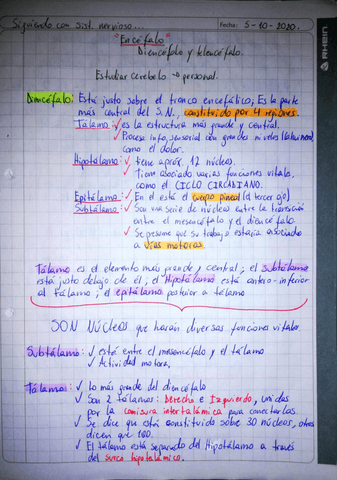 Siguiendo con sist. nervioso... Fecha: 5-10-2020.
RHEIN
"Encéfalo"
Diencéfalo y telencéfalo.
Estudiar cerebelo → personal.
Diencéfalo: Está justo sobre el tronco encefálico; Es la parte
más central del S.N., constituido por 4 regiones.
Tálamo: ✓ es la estructura más grande y central.
✓ Procesa info. sensorial a grandes niveles
como el dolor.
Hipotálamo: ✓ tiene aprox. 12 núcleos.
✓ Tiene asociado varias funciones vitales,
como el CICLO CIRCADIANO.
Epitálamo: ✓ En él está el cuerpo pineal (3er ojo)
Subtálamo: ✓ Son una serie de núcleos entre la transición
entre el mesencéfalo y el diencéfalo
✓ Se presume que su trabajo estaría asociado
a vías motoras.
Tálamo es el elemento más grande y central; el subtálamo
está justo debajo de él; el Hipotálamo está antero-inferior
al tálamo; el epitálamo posterior a tálamo
SON NÚCLEOS que harán diversas funciones vitales.
Subtálamo: ✓ está entre el mesencéfalo y el tálamo
✓ Actividad motora.
Tálamo: ✓ Lo más grande del diencéfalo
✓ Son 2 tálamos: Derecho e Izquierdo, unidas
por la comisura intertalámica para conectarlas.
✓ Se dice que está constituido sobre 30 núcleos, otros
dicen que 100.
✓ El tálamo está separado del Hipotálamo a través
del surco hipotalámico.